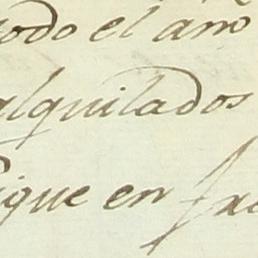 todo el año
alquilados
ique en fra